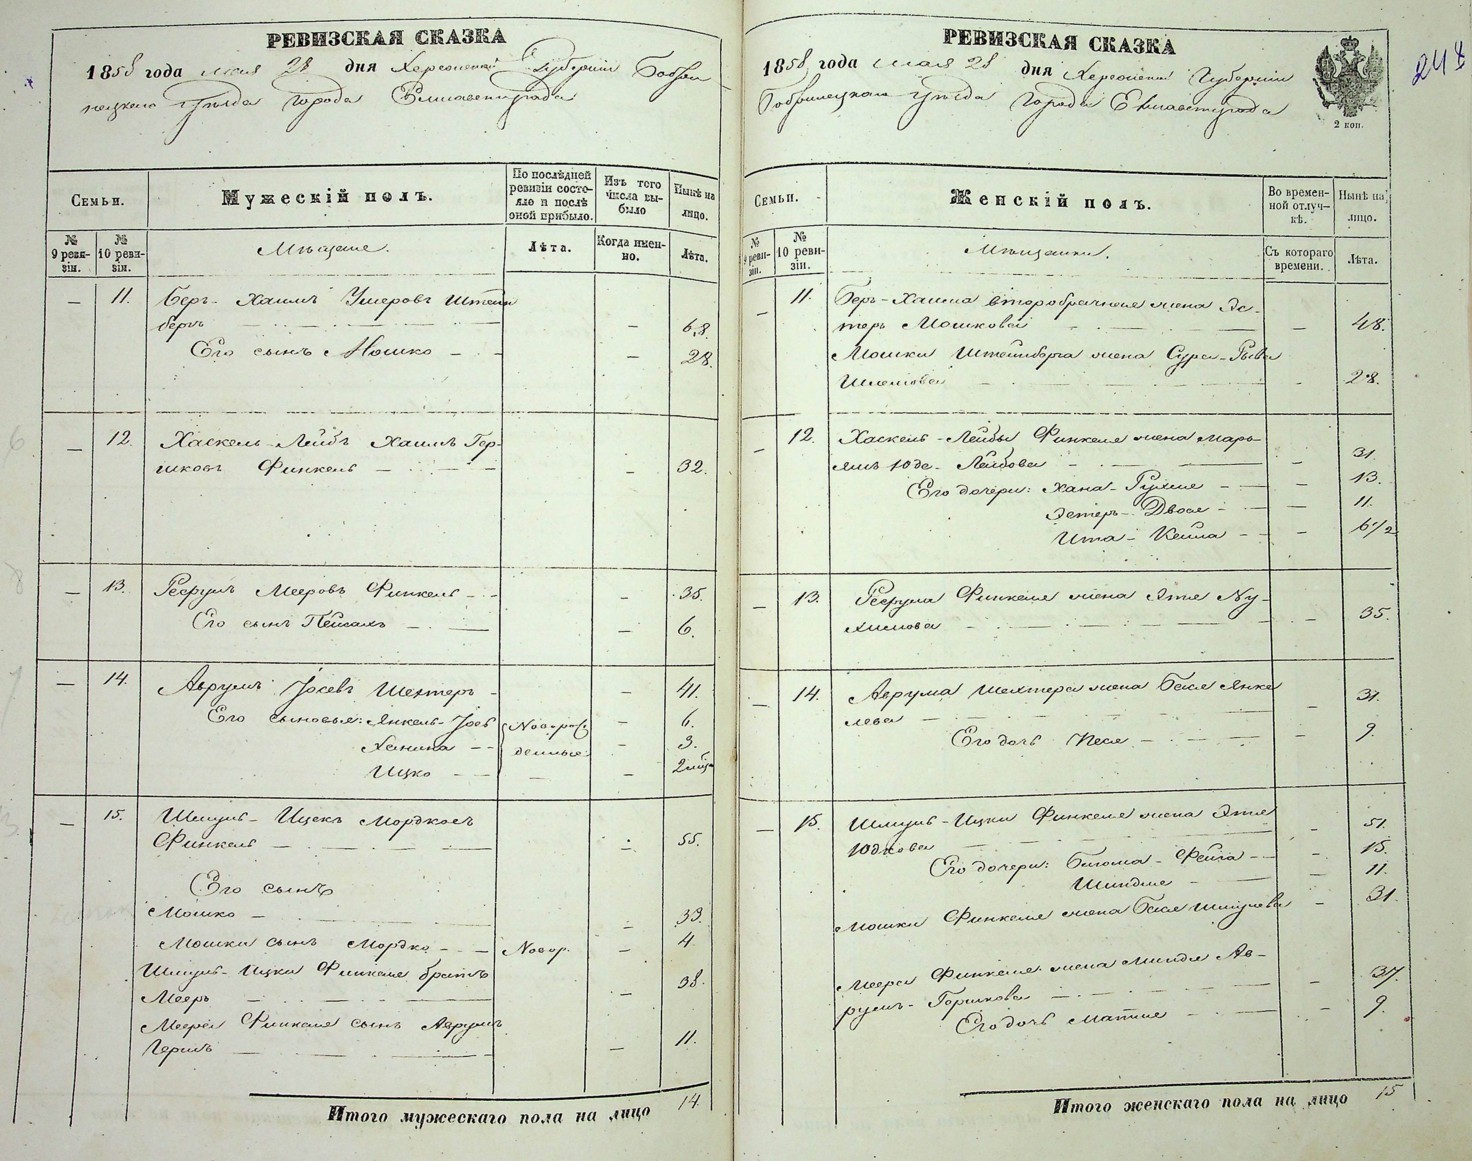 РЕВИЗСКАЯ СКАЗКА
1858 года мая 28 дня Херсонской Губернии Бобри
нецкаго Уѣзда Города Елисаветграда
Семьи.
Мужескій полъ.
По послѣдней ревизіи состояло и послѣ оной прибыло.
Изъ того числа выбыло
Нынѣ на лицо.
№ 9 ревизіи.
№ 10 ревизіи.
Мѣщане.
Лѣта.
Когда именно.
Лѣта.
— 11. Беръ-Хаимъ Ушеровъ Штейн
бергъ — 68.
Его сынъ Мошко — 28.
— 12. Хаскель-Лейбъ Хаимъ Гер-
шковъ Финкель — 32.
— 13. Мееровъ Финкель — 35.
Его сынъ Пейсахъ — 6.
— 14. Аврумъ Іосевъ Шехтеръ — 41.
Его сыновья: Янкель-Іосъ Новорож 6.
Ханина — денные 3.
Ицко — 2 мѣся
— 15. Шмуль-Ицекъ Мордковъ
Финкель — 55.
Его сынъ
Мошко — 33.
Мошки сынъ Мордко — Новор. — 4
Шмуль-Ицки Финкеля братъ
Мееръ — 38.
Меера Финкеля сынъ Аврумъ
Гершъ — 11.
Итого мужескаго пола на лицо 14
РЕВИЗСКАЯ СКАЗКА
1858 года мая 28 дня Херсонской Губерніи
Бобринецкаго уѣзда Города Елисаветграда
2 коп.
241
Семьи.
Женскій полъ.
Во временной отлучкѣ.
Нынѣ на лицо.
№ 9 ревизіи.
№ 10 ревизіи.
Мѣщанки.
Съ котораго времени.
Лѣта.
— 11. Беръ-Хаима второбрачная жена Эс-
теръ Мошкова — 48.
Мошки Штейнберга жена Сура-Рывка
Шлемова — 28.
— 12. Хаскель-Лейбы Финкеля жена Марь-
ямъ Юдо-Лейбова — 31.
Его дочери: Хана-Рухля — 13.
Эстеръ-Двося — 11.
Ита-Кейла — 6 1/2
— 13. Финкеля жена Этя Ну-
химова — 35.
— 14. Аврума Шехтера жена Бася Янке
лева — 31.
Его дочь Песя — 9.
— 15. Шмуль-Ицки Финкеля жена Этя
Юдкова — 51.
Его дочери: Блюма-Фейга — 15.
Шиндля — 11.
Мошки Финкеля жена Бася Шмулева — 31.
Меера Финкеля жена Миндля Ав-
румъ-Гершкова — 37.
Его дочь Матля — 9.
Итого женскаго пола на лицо 15